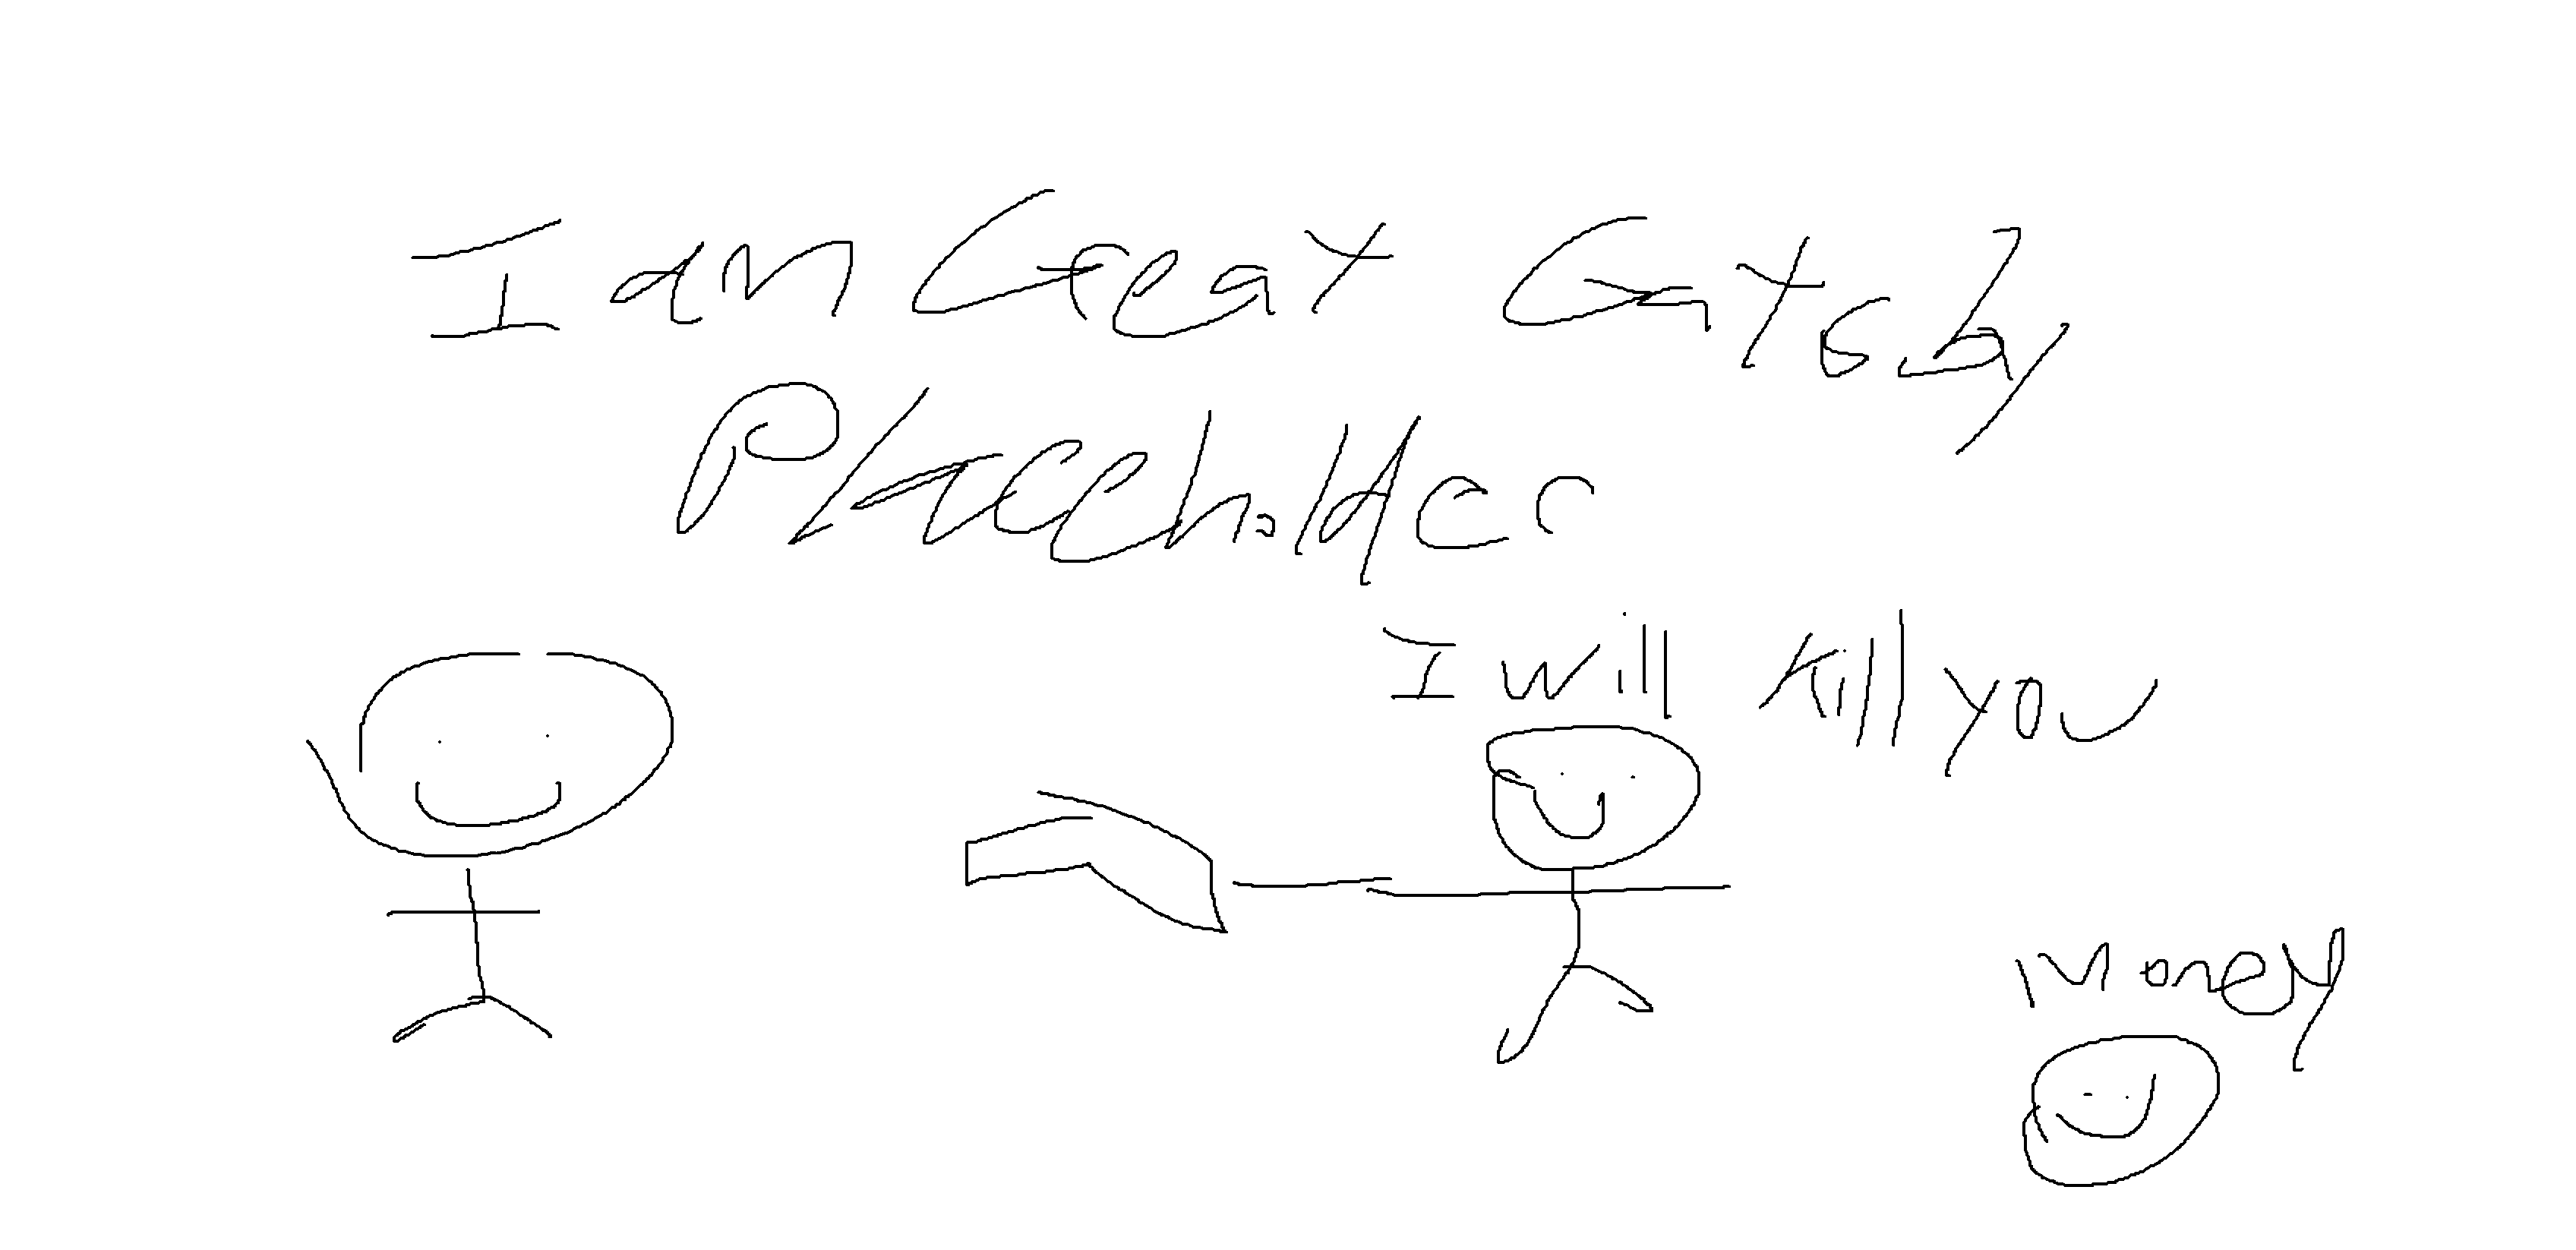 I am Great Gatsby
Placeholder
I will kill you
Money